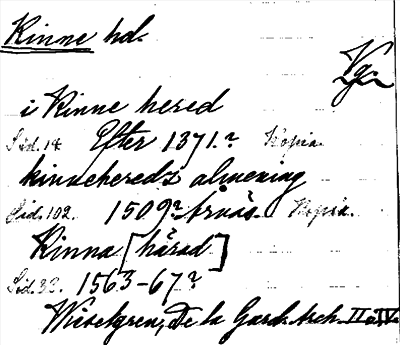 Kinne hd.
Vg.
i Kinne hered
Sid. 14 Efter 1371.? Kopia.
kinnehereds almening
Sid. 102. 1509? Årnäs. Kopia.
Kinna [härad]
Sid. 33. 1563-67?
Wieselgren, De la Gard. Arch. II o. IV.